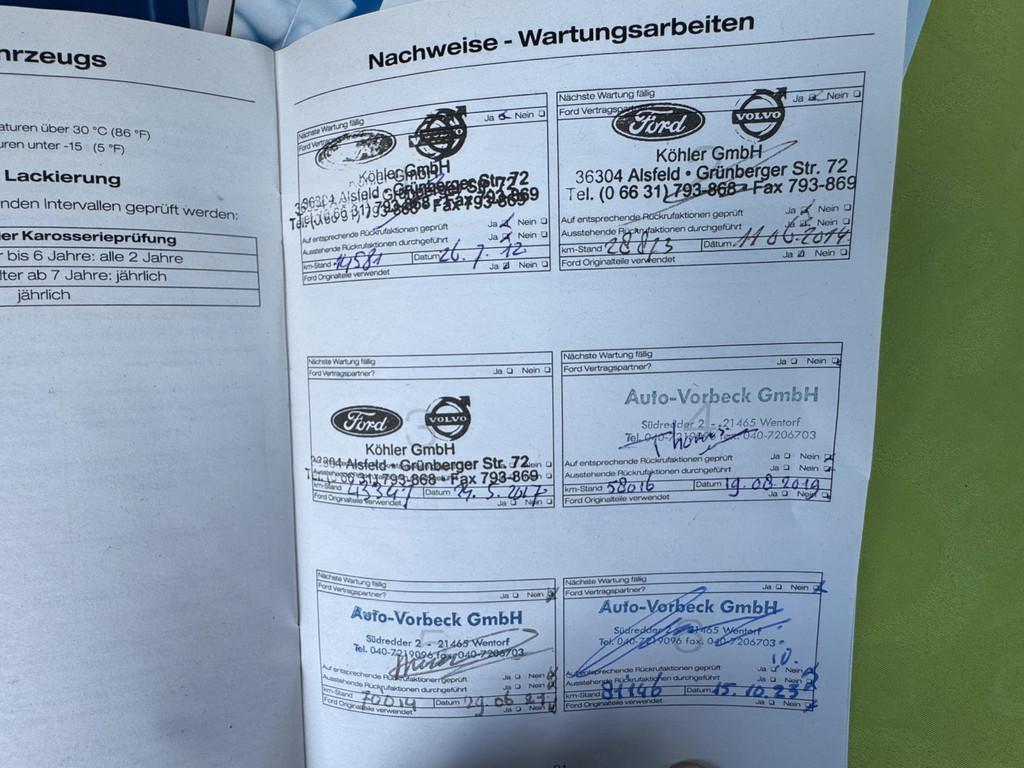 hrzeugs
aturen über 30 °C (86 °F)
uren unter -15 (5 °F)
Lackierung
nden Intervallen geprüft werden:
er Karosserieprüfung
r bis 6 Jahre: alle 2 Jahre
lter ab 7 Jahre: jährlich
jährlich
Nachweise - Wartungsarbeiten
Nächste Wartung fällig
Ford Vertragspartner? Ja Nein
VOLVO
Köhler GmbH
36304 Alsfeld • Grünberger Str. 72
Tel. (0 66 31) 793-868 • Fax 793-869
Auf entsprechende Rückrufaktionen geprüft Ja Nein
Ausstehende Rückrufaktionen durchgeführt Ja Nein
km-Stand 14581 Datum 26.7.12
Ford Originalteile verwendet Ja Nein
Nächste Wartung fällig
Ford Vertragspartner? Ja Nein
Ford VOLVO
Köhler GmbH
36304 Alsfeld • Grünberger Str. 72
Tel. (0 66 31) 793-868 • Fax 793-869
Auf entsprechende Rückrufaktionen geprüft Ja Nein
Ausstehende Rückrufaktionen durchgeführt Ja Nein
km-Stand Datum 11.06.2014
Ford Originalteile verwendet Ja Nein
Nächste Wartung fällig
Ford Vertragspartner? Ja Nein
3
Ford VOLVO
Köhler GmbH
36304 Alsfeld • Grünberger Str. 72
Tel. (0 66 31) 793-868 • Fax 793-869
km-Stand 43347 Datum 2017
Ford Originalteile verwendet Ja Nein
Nächste Wartung fällig
Ford Vertragspartner? Ja Nein
4
Auto-Vorbeck GmbH
Südredder 2 - 21465 Wentorf
Tel. 040-7219096 fax. 040-7206703
Auf entsprechende Rückrufaktionen geprüft Ja Nein
Ausstehende Rückrufaktionen durchgeführt Ja Nein
km-Stand 58016 Datum 19.08.2019
Ford Originalteile verwendet Ja Nein
Nächste Wartung fällig
Ford Vertragspartner? Ja Nein
5
Auto-Vorbeck GmbH
Südredder 2 - 21465 Wentorf
Tel. 040-7219096 fax. 040-7206703
Auf entsprechende Rückrufaktionen geprüft Ja Nein
Ausstehende Rückrufaktionen durchgeführt Ja Nein
km-Stand 70014 Datum 29.06.21
Ford Originalteile verwendet Ja Nein
Nächste Wartung fällig
Ford Vertragspartner? Ja Nein
6
Auto-Vorbeck GmbH
Südredder 2 - 21465 Wentorf
Tel. 040-7219096 fax. 040-7206703
Auf entsprechende Rückrufaktionen geprüft Ja Nein
Ausstehende Rückrufaktionen durchgeführt Ja Nein
km-Stand 81146 Datum 15.10.23
Ford Originalteile verwendet Ja Nein